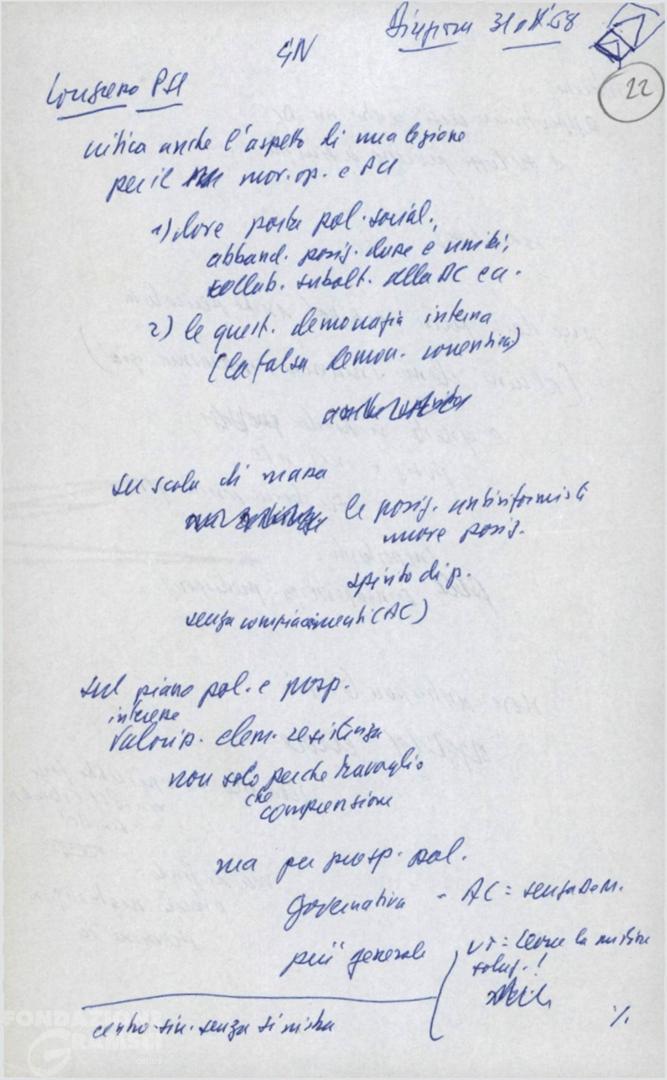 Direzione 31.X.68
22
GN
Congresso PSI
critica anche l'aspetto di una lezione
per il mov. op. e PCI
1) dove porta pol. social.,
abband. posiz. classe e unità;
collab. subalt. alla DC ecc.
2) le quest. democrazia interna
(la falsa democr. correntizia)
su scala di massa
le posiz. antiriformisti
nuove posiz.
spirito di p.
senza compiacimenti (AC)
sul piano pol. e prosp.
interesse
valoriz. elem. resistenza
non solo perché travaglio
che comprensione
ma per prosp. pol.
governativa - AC = senza Dem.
più generale
solut.!
centro-sin. senza sinistra
%
FONDAZIONE
GRAMSCI